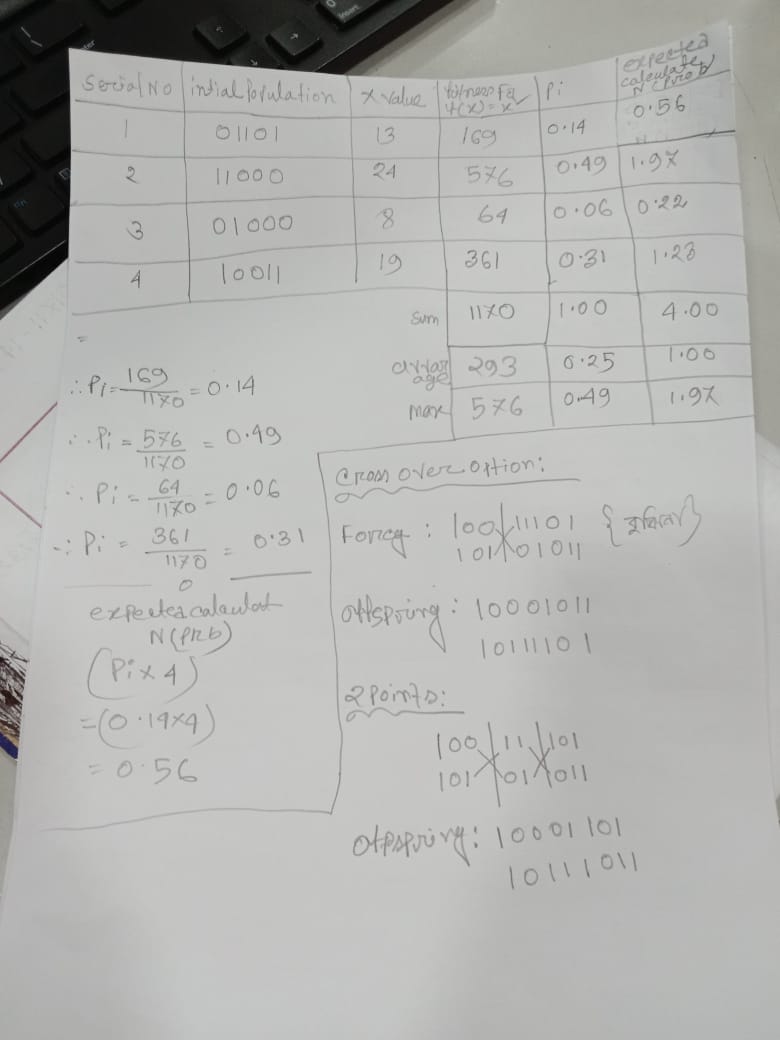 Serial No intial population X value fitness Fn f(x)=x² Pi expected calculate N (prob)
1 01101 13 169 0.14 0.56
2 11000 24 576 0.49 1.97
3 01000 8 64 0.06 0.22
4 10011 19 361 0.31 1.23
Sum 1170 1.00 4.00
avrage 293 0.25 1.00
max 576 0.49 1.97
∴ Pi = 169/1170 = 0.14
∴ Pi = 576/1170 = 0.49
∴ Pi = 64/1170 = 0.06
∴ Pi = 361/1170 = 0.31
0
expected calculat
N (prb)
(Pi x 4)
=(0.14x4)
= 0.56
Cross over option:
: 100 11101
101 01011
offspring: 10001011
10111101
2 Points:
100 11 101
101 01 011
Offspring: 10001101
10111011